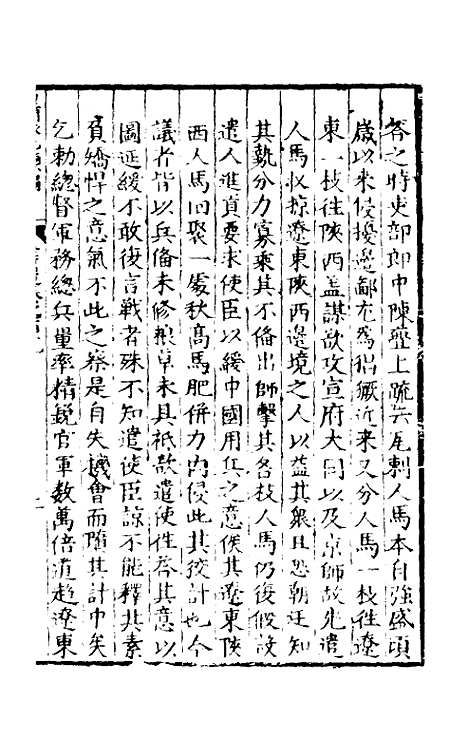 答之時吏部郎中陳璽上疏云尾剌人馬本自強盛頃
歲以来侵擾邊鄙尤為猖獗近来又分人馬一枝徃遼
東一枝徃陝西盖謀欲攻宣府大同以及京師故先遣
人馬収掠遼東陝西邊境之人以益其衆且恐朝廷知
其勢分力寡乘其不俻出師擊其各枝人馬仍復假故
遣人進貢要求使臣以緩中國用兵之意俟其遼東陝
西人馬囘聚一處秋高馬肥併力内侵此其狡計也今
議者皆以兵俻未修粮草未具秪欲遣使徃荅其意以
圖延緩不敢復言戰者殊不知遣使臣諒不能釋其素
負驕悍之意氣不此之察是自失機會而隋其計中矣
乞勅總督軍務總兵量率精銳官軍数萬倍道趍遼東